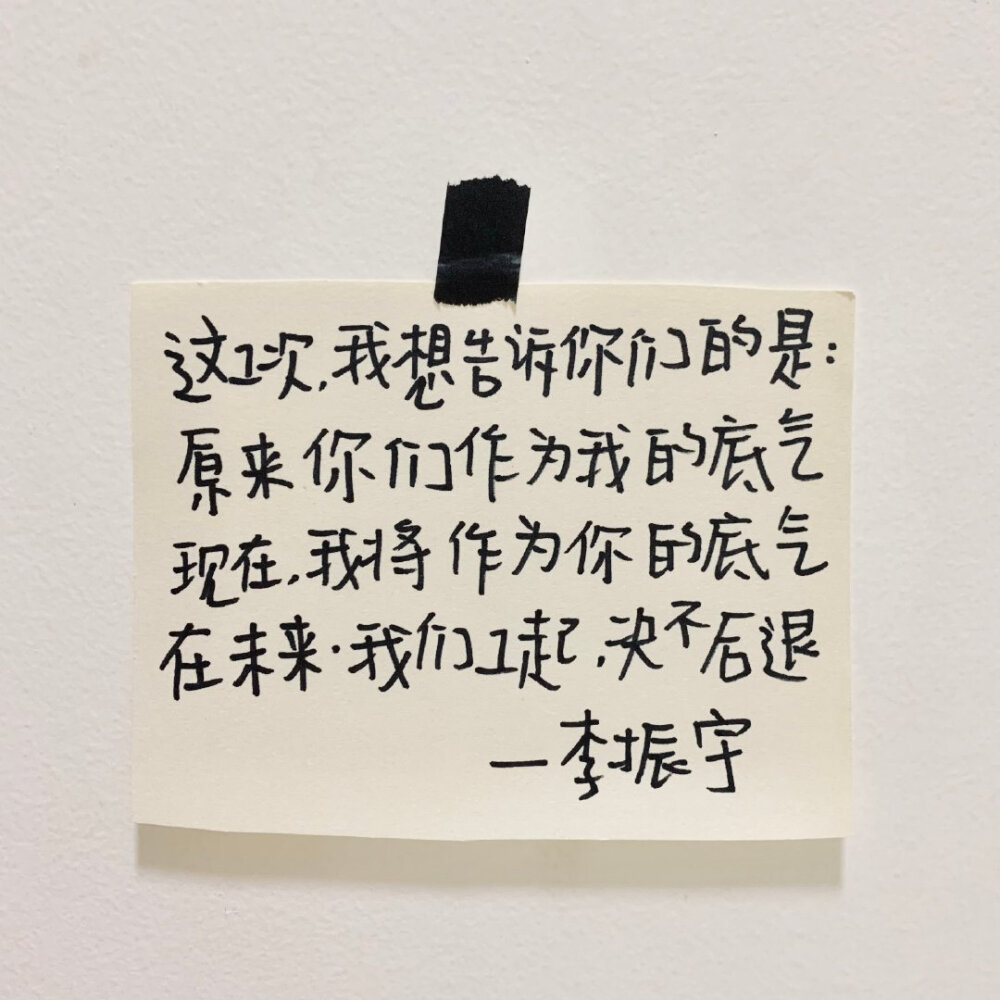 这一次,我想告诉你们的是:
原来你们作为我的底气
现在,我将作为你的底气
在未来·我们一起,决不后退
—李振宇